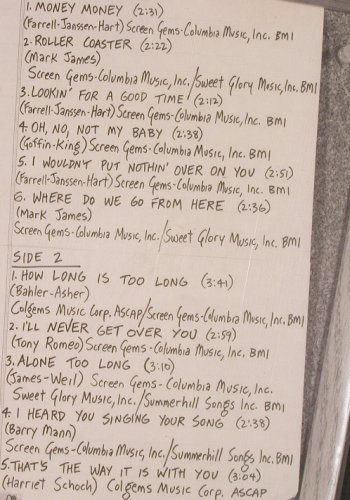 1. MONEY MONEY (2:31)
(Farrell-Janssen-Hart) Screen Gems-Columbia Music, Inc. BMI
2. ROLLER COASTER (2:22)
(Mark James)
Screen Gems-Columbia Music, Inc./Sweet Glory Music, Inc. BMI
3. LOOKIN' FOR A GOOD TIME! (2:12)
(Farrell-Janssen-Hart) Screen Gems-Columbia Music, Inc. BMI
4. OH, NO, NOT MY BABY (2:38)
(Goffin-King) Screen Gems-Columbia Music, Inc. BMI
5. I WOULDN'T PUT NOTHIN' OVER ON YOU (2:51)
(Farrell-Janssen-Hart) Screen Gems-Columbia Music, Inc. BMI
6. WHERE DO WE GO FROM HERE (2:36)
(Mark James)
Screen Gems-Columbia Music, Inc./Sweet Glory Music, Inc. BMI
SIDE 2
1. HOW LONG IS TOO LONG (3:41)
(Bahler-Asher)
Colgems Music Corp. ASCAP/Screen Gems-Columbia Music, Inc. BMI
2. I'LL NEVER GET OVER YOU (2:59)
(Tony Romeo) Screen Gems-Columbia Music, Inc. BMI
3. ALONE TOO LONG (3:10)
(James-Weil) Screen Gems-Columbia Music, Inc.
Sweet Glory Music, Inc./Summerhill Songs Inc. BMI
4. I HEARD YOU SINGING YOUR SONG (2:38)
(Barry Mann)
Screen Gems-Columbia Music, Inc./Summerhill Songs Inc. BMI
5. THAT'S THE WAY IT IS WITH YOU (3:04)
(Harriet Schock) Colgems Music Corp. ASCAP